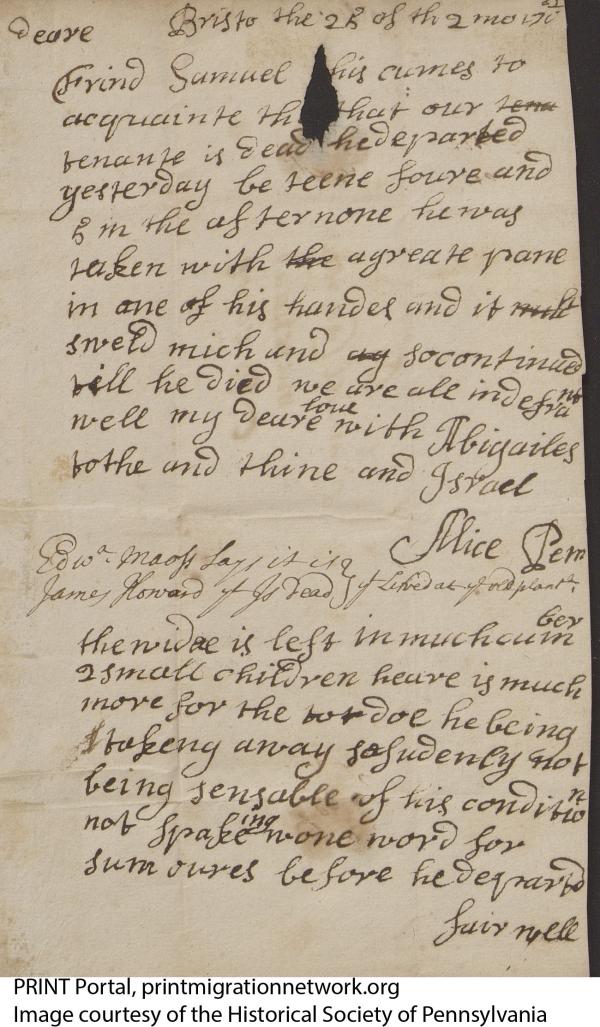 deare Bristo the 28 of th 2 mo 170
Frind Samuel this cumes to
acquainte th that our tena
tenante is dead he departed
yesterday be teene foure and
5 in the afternone he was
taken with the agreate pane
in one of his handes and it
sweld mich and ag socontinued
till he died we are all indefrant
well my deare love with Abigailes
tothe and thine and Israel
Alice Pem
Edwd. Maoss says it is
James Howard yt Is dead yt Lived at ye old plantn.
the widoe is left in much cumber
2 small children heare is much
more for the to doe he being
takeng away so sudenly not
being sensable of his condition
not spakeing wone word for
sum oures before he departd
fair well
PRINT Portal, printmigrationnetwork.org
Image courtesy of the Historical Society of Pennsylvania